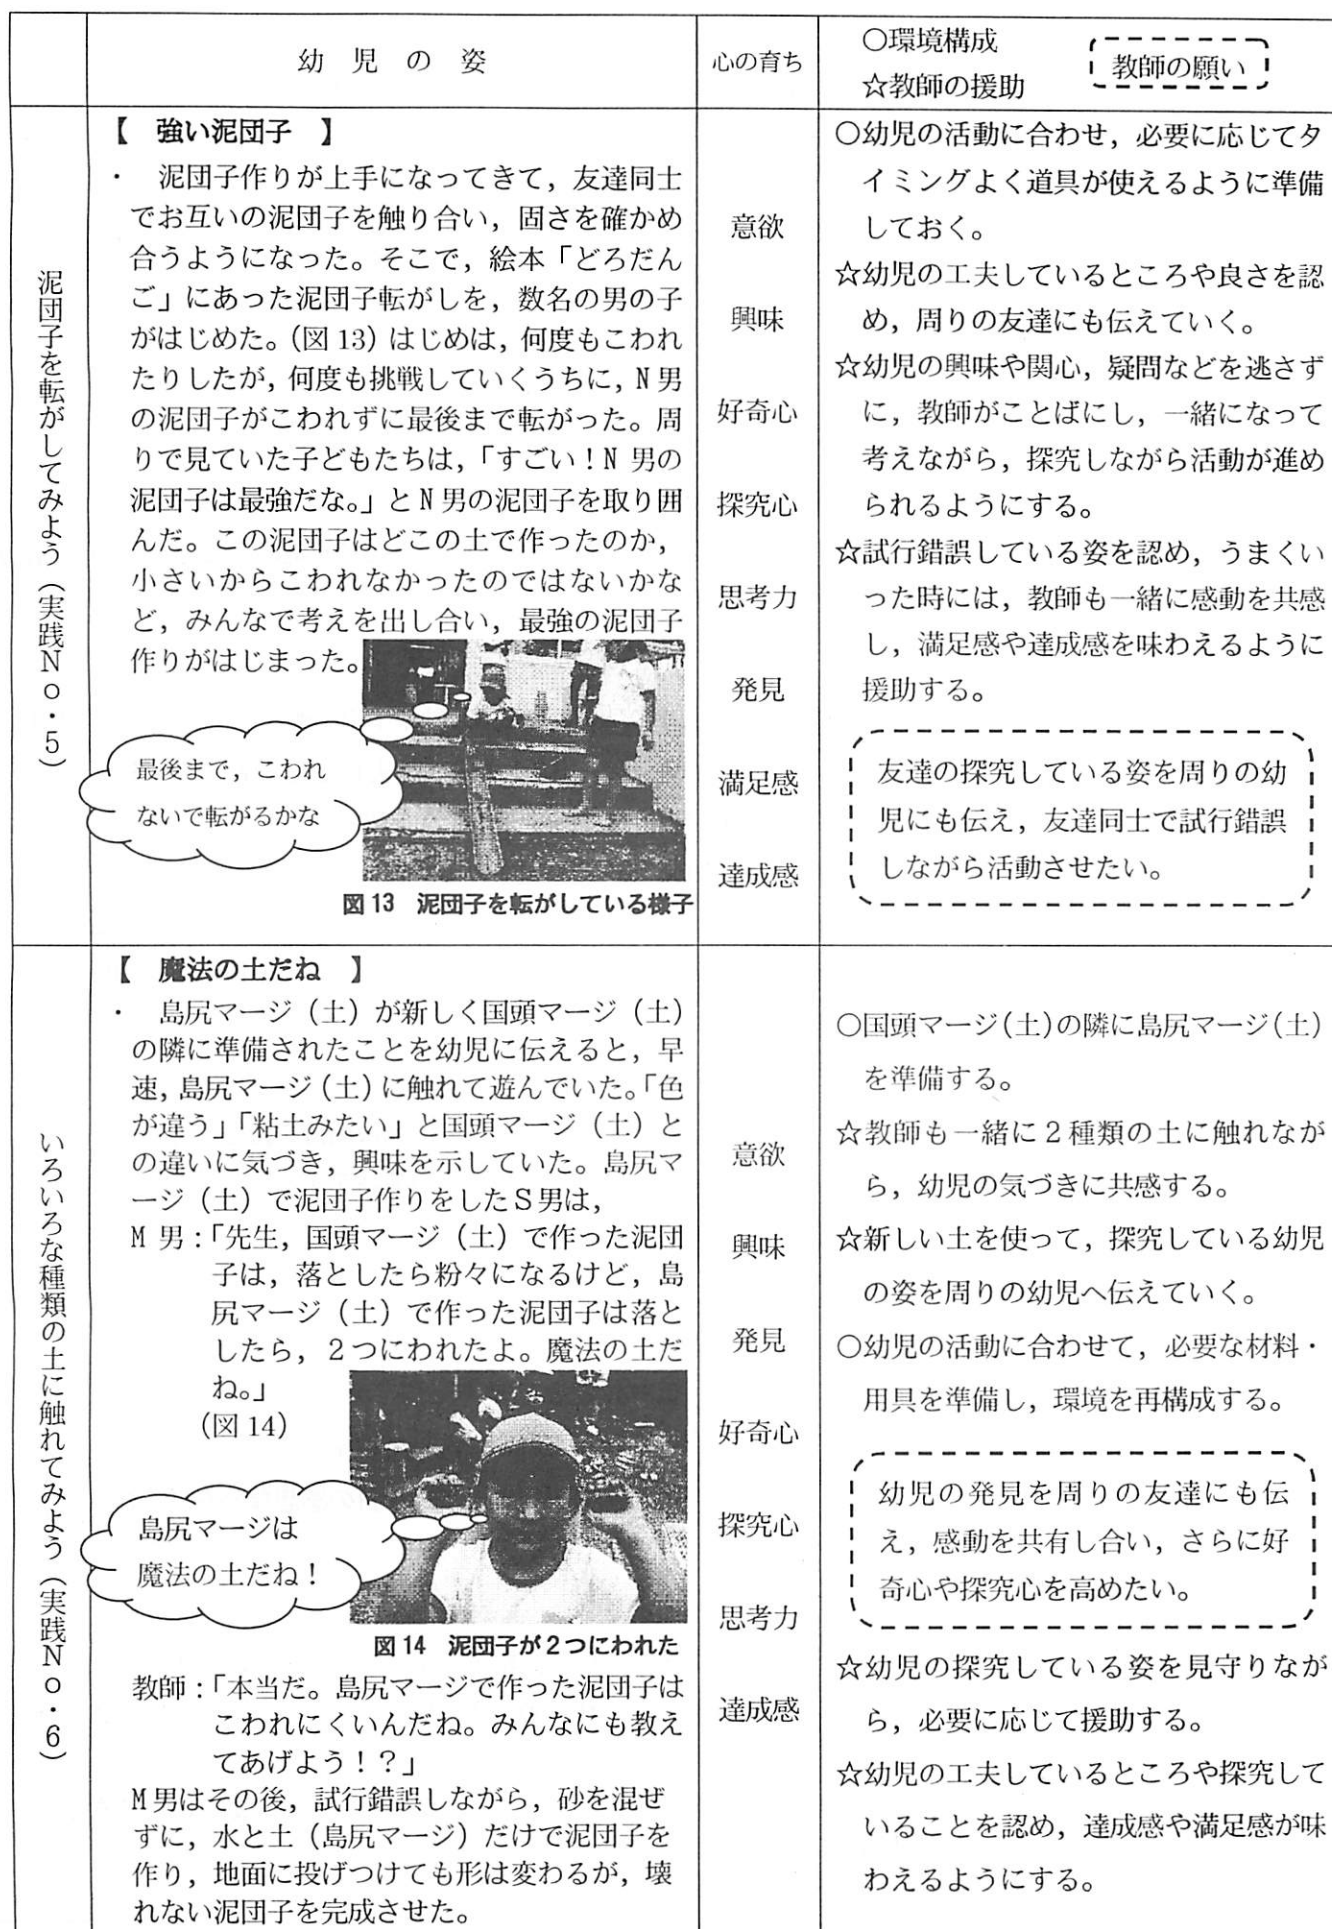 幼児の姿
心の育ち
○環境構成
☆教師の援助
教師の願い
泥団子を転がしてみよう（実践No.5）
【　強い泥団子　】
・　泥団子作りが上手になってきて，友達同士
でお互いの泥団子を触り合い，固さを確かめ
合うようになった。そこで，絵本「どろだん
ご」にあった泥団子転がしを，数名の男の子
がはじめた。（図13）はじめは，何度もこわれ
たりしたが，何度も挑戦していくうちに，N男
の泥団子がこわれずに最後まで転がった。周
りで見ていた子どもたちは，「すごい！N男の
泥団子は最強だな。」とN男の泥団子を取り囲
んだ。この泥団子はどこの土で作ったのか，
小さいからこわれなかったのではないかな
ど，みんなで考えを出し合い，最強の泥団子
作りがはじまった。
最後まで，こわれ
ないで転がるかな
図13　泥団子を転がしている様子
意欲
興味
好奇心
探究心
思考力
発見
満足感
達成感
○幼児の活動に合わせ，必要に応じてタ
イミングよく道具が使えるように準備
しておく。
☆幼児の工夫しているところや良さを認
め，周りの友達にも伝えていく。
☆幼児の興味や関心，疑問などを逃さず
に，教師がことばにし，一緒になって
考えながら，探究しながら活動が進め
られるようにする。
☆試行錯誤している姿を認め，うまくい
った時には，教師も一緒に感動を共感
し，満足感や達成感を味わえるように
援助する。
友達の探究している姿を周りの幼
児にも伝え，友達同士で試行錯誤
しながら活動させたい。
いろいろな種類の土に触れてみよう（実践No.6）
【　魔法の土だね　】
・　島尻マージ（土）が新しく国頭マージ（土）
の隣に準備されたことを幼児に伝えると，早
速，島尻マージ（土）に触れて遊んでいた。「色
が違う」「粘土みたい」と国頭マージ（土）と
の違いに気づき，興味を示していた。島尻マ
ージ（土）で泥団子作りをしたS男は，
M男：「先生，国頭マージ（土）で作った泥団
子は，落としたら粉々になるけど，島
尻マージ（土）で作った泥団子は落と
したら，２つにわれたよ。魔法の土だ
ね。」
（図14）
島尻マージは
魔法の土だね！
図14　泥団子が２つにわれた
教師：「本当だ。島尻マージで作った泥団子は
こわれにくいんだね。みんなにも教え
てあげよう！？」
M男はその後，試行錯誤しながら，砂を混ぜ
ずに，水と土（島尻マージ）だけで泥団子を
作り，地面に投げつけても形は変わるが，壊
れない泥団子を完成させた。
意欲
興味
発見
好奇心
探究心
思考力
達成感
○国頭マージ（土）の隣に島尻マージ（土）
を準備する。
☆教師も一緒に２種類の土に触れなが
ら，幼児の気づきに共感する。
☆新しい土を使って，探究している幼児
の姿を周りの幼児へ伝えていく。
○幼児の活動に合わせて，必要な材料・
用具を準備し，環境を再構成する。
幼児の発見を周りの友達にも伝
え，感動を共有し合い，さらに好
奇心や探究心を高めたい。
☆幼児の探究している姿を見守りなが
ら，必要に応じて援助する。
☆幼児の工夫しているところや探究して
いることを認め，達成感や満足感が味
わえるようにする。